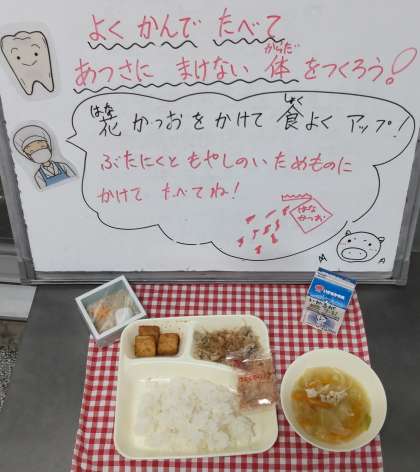 よく かんで たべて
あつさに まけない 体 をつくろう！
からだ
花 かつおをかけて 食よく アップ！
はな
しょく
ぶたにくと もやしの いためものに
かけて たべてね！
はな
かつお